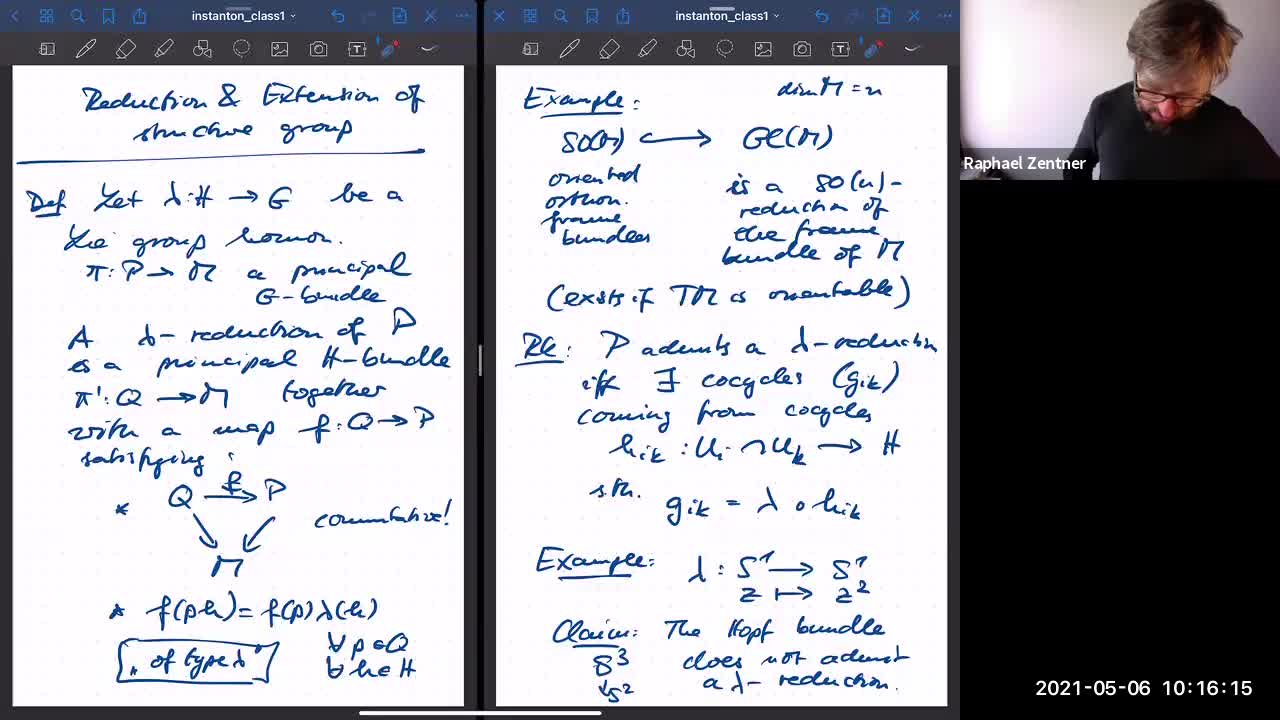 instanton_class1
instanton_class1
Reduction & Extension of
structure group
Def Let λ: H → G be a
Lie group homom.
π: P → M a principal
G-bundle
A λ-reduction of P
is a principal H-bundle
π': Q → M together
with a map f: Q → P
satisfying:
* Q →f P
commutative!
M
* f(p h) = f(p) λ(h)
∀ p ∈ Q
∀ h ∈ H
"of type λ"
Example: dim M = n
SO(n) ↪ GL(n)
oriented
orthon.
frame
bundles
is a SO(n)-
reduction of
the frame
bundle of M
(exists if TM is orientable)
Rk: P admits a λ-reduction
iff ∃ cocycles (gik)
coming from cocycles
hik : Ui ∩ Uk → H
s.th. gik = λ ∘ hik
Example: λ : S¹ → S¹
z ↦ z²
Claim: The Hopf bundle
S³ does not admit
↓S² a λ-reduction.
Raphael Zentner
2021-05-06 10:16:15